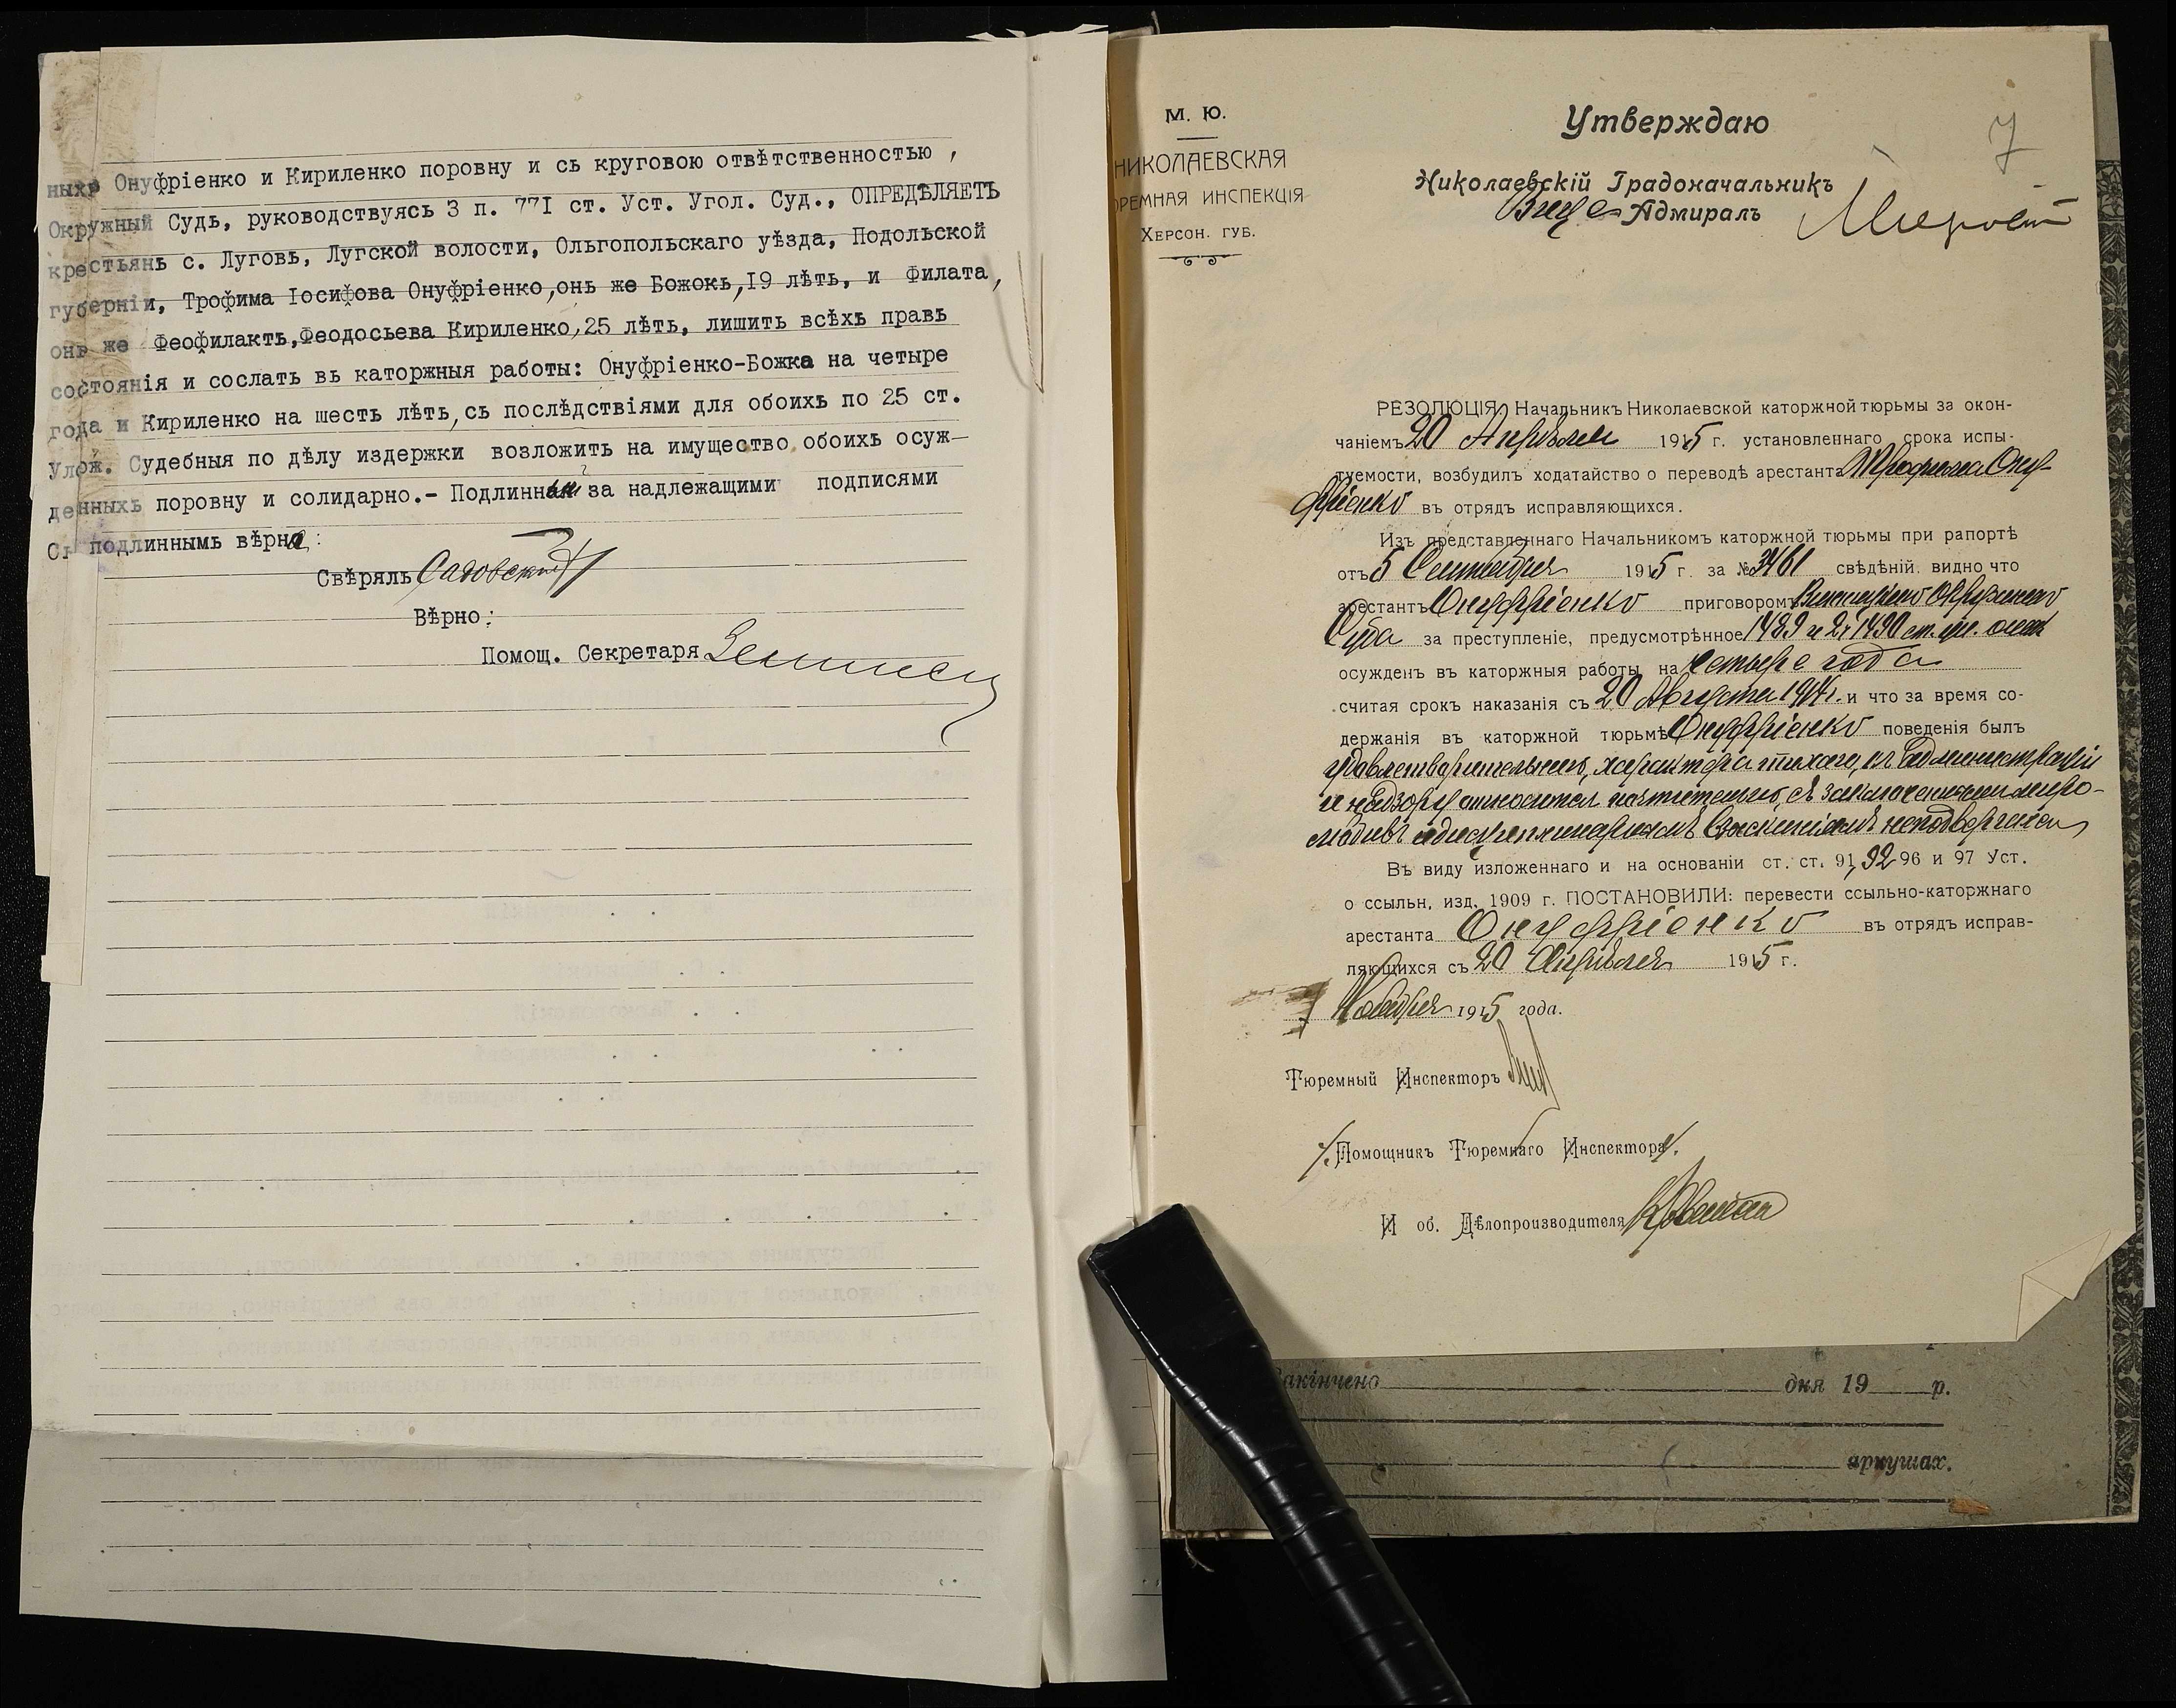 ныхъ Онуфріенко и Кириленко поровну и съ круговою отвѣтственностью ,
Окружный Судъ, руководствуясь 3 п. 77I ст. Уст. Угол. Суд., ОПРЕДѢЛЯЕТЪ
крестьянъ с. Луговъ, Лугской волости, Ольгопольскаго уѣзда, Подольской
губерніи, Трофима Іосифова Онуфріенко,онъ же Божокъ,I9 лѣтъ, и Филата,
онъ же Феофилактъ,Феодосьева Кириленко,25 лѣтъ, лишить всѣхъ правъ
состоянія и сослать въ каторжныя работы: Онуфріенко-Божка на четыре
года и Кириленко на шесть лѣтъ,съ послѣдствіями для обоихъ по 25 ст.
Улож. Судебныя по дѣлу издержки возложить на имущество обоихъ осуж-
денныхъ поровну и солидарно.- Подлинный за надлежащими подписями
Съ подлиннымъ вѣрно:
Свѣрялъ Садовскій
Вѣрно:
Помощ. Секретаря
М. Ю.
НИКОЛАЕВСКАЯ
ОРЕМНАЯ ИНСПЕКЦІЯ
ХЕРСОН. ГУБ.
7
Утверждаю
Николаевскій Градоначальникъ
Вице-Адмиралъ
РЕЗОЛЮЦІЯ. Начальникъ Николаевской каторжной тюрьмы за окон-
чаніемъ 20 Апрѣля 1915 г. установленнаго срока испы-
туемости, возбудилъ ходатайство о переводѣ арестанта Трофима Ону-
фріенко въ отрядъ исправляющихся.
Изъ представленнаго Начальникомъ каторжной тюрьмы при рапортѣ
отъ 5 Сентября 1915 г. за № 3461 свѣдѣній, видно что
арестантъ Онуфріенко приговоромъ Винницкаго Окружнаго
Суда за преступленіе, предусмотрѣнное 1489 и 2 ч 1490 ст. ул. о нак
осужденъ въ каторжныя работы на четыре года
считая срокъ наказанія съ 20 Августа 1914 г. и что за время со-
держанія въ каторжной тюрьмѣ Онуфріенко поведенія былъ
удовлетворительнаго, характера тихаго, къ администраціи
и надзору относится почтительно, съ заключенными миро-
любивъ и дисциплинарнымъ взысканіямъ не подвергался
Въ виду изложеннаго и на основаніи ст. ст. 91, 92 96 и 97 Уст.
о ссыльн, изд. 1909 г. ПОСТАНОВИЛИ: перевести ссыльно-каторжнаго
арестанта Онуфріенко въ отрядъ исправ-
ляющихся съ 20 Апрѣля 1915 г.
7 Ноября 1915 года.
Тюремный Инспекторъ
Помощникъ Тюремнаго Инспектора
И об. Дѣлопроизводителя
Закінчено дня 19 р.
аркушах.